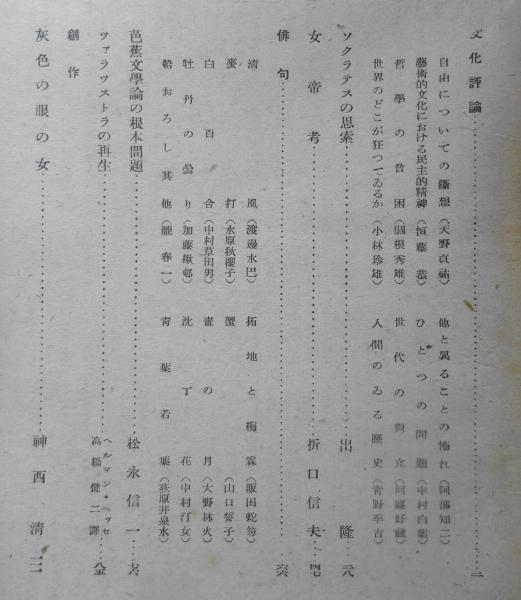 文化評論…………二
自由についての斷想（天野貞祐）　他と異ることの怖れ（阿部知二）
藝術的文化における民主的精神（恒藤恭）　ひとつの問題（中村白葉）
哲學の貧困（關根秀雄）　世代の對立（河盛好藏）
世界のどこが狂つてゐるか（小林珍雄）　人間のゐる歷史（靑野季吉）
ソクラテスの思索…………出隆
女帝考…………折口信夫
俳句…………
淸風（渡邊水巴）　拓地と梅霖（飯田蛇笏）
麥打（水原秋櫻子）　蟹（山口誓子）
白百合（中村草田男）　晝の月（大野林火）
牡丹の曇り（加藤楸邨）　沈丁花（中村汀女）
船おろし其他（瀧春一）　靑葉若葉（荻原井泉水）
芭蕉文學論の根本問題…………松永信一
ツァラツストラの再生…………ヘルマン・ヘッセ 高橋健二譯
創作
灰色の眼の女…………神西淸